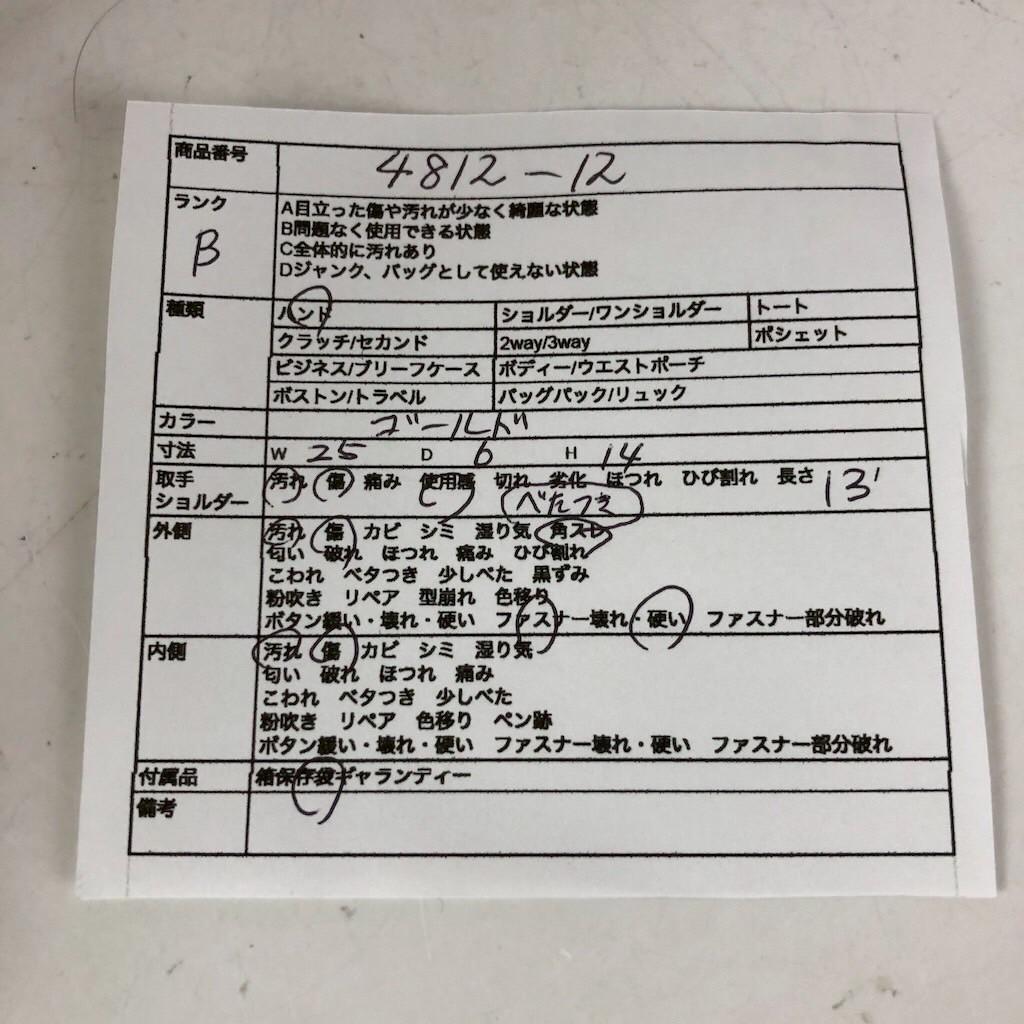 商品番号 4812-12
ランク A目立った傷や汚れが少なく綺麗な状態
B B問題なく使用できる状態
C全体的に汚れあり
Dジャンク、バッグとして使えない状態
種類 ハンド ショルダー/ワンショルダー トート
クラッチ/セカンド 2way/3way ポシェット
ビジネス/ブリーフケース ボディー/ウエストポーチ
ボストン/トラベル バッグパック/リュック
カラー ゴールド
寸法 W 25 D 6 H 14
取手 汚れ 傷 痛み 使用感 切れ 劣化 ほつれ ひび割れ 長さ 13
ショルダー べたつき
外側 汚れ 傷 カビ シミ 湿り気 角スレ
匂い 破れ ほつれ 痛み ひび割れ
こわれ ベタつき 少しべた 黒ずみ
粉吹き リペア 型崩れ 色移り
ボタン緩い・壊れ・硬い ファスナー壊れ・硬い ファスナー部分破れ
内側 汚れ 傷 カビ シミ 湿り気
匂い 破れ ほつれ 痛み
こわれ ベタつき 少しべた
粉吹き リペア 色移り ペン跡
ボタン緩い・壊れ・硬い ファスナー壊れ・硬い ファスナー部分破れ
付属品 箱保存袋ギャランティー
備考